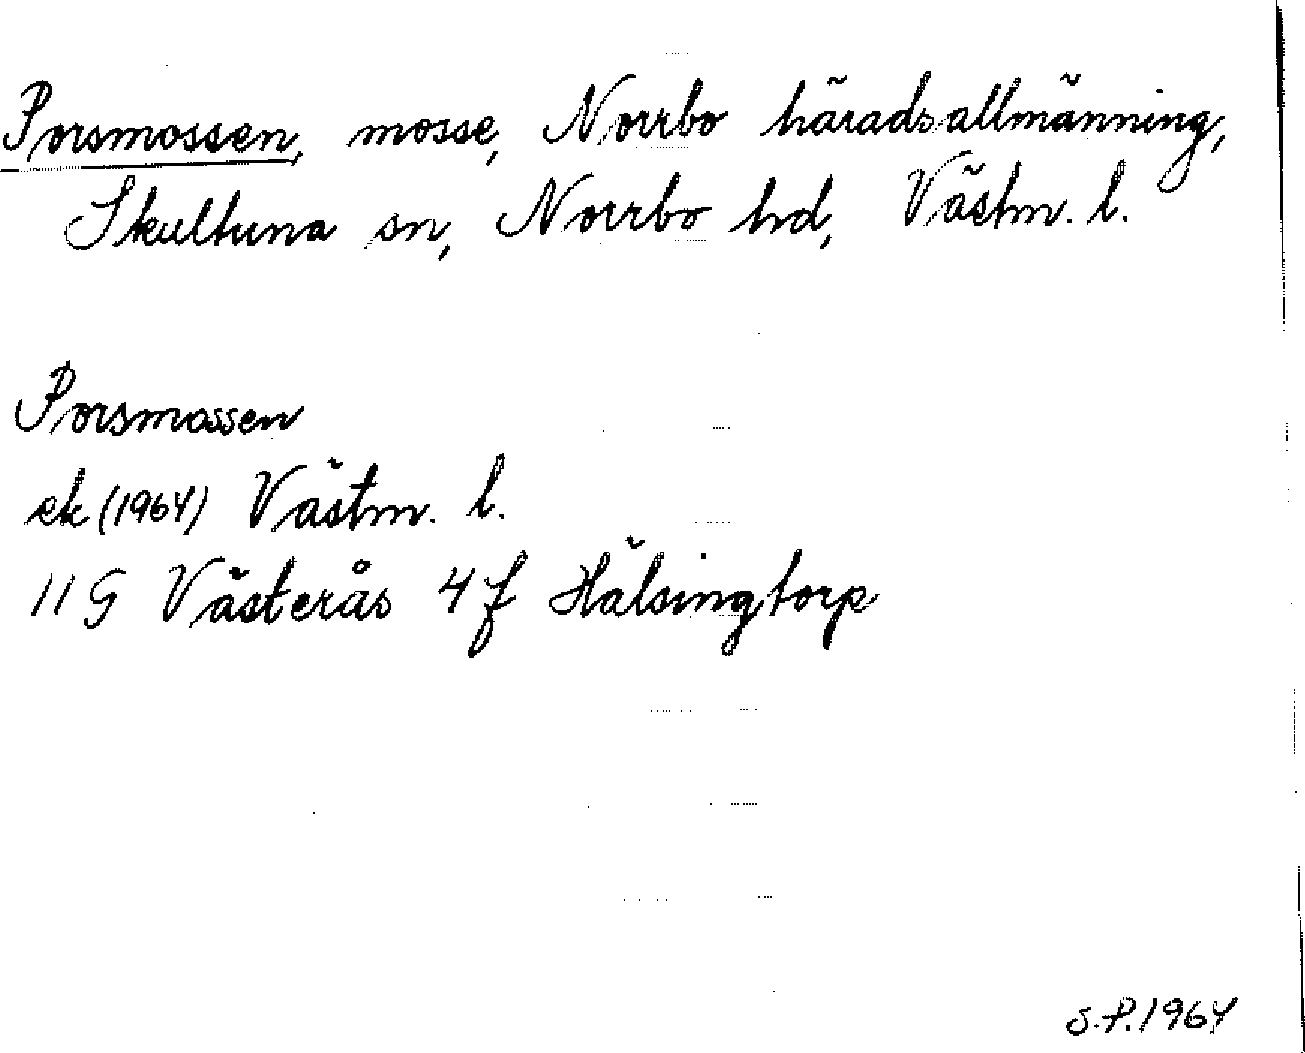 Porsmossen, mosse, Norrbo häradsallmänning,
Skultuna sn, Norrbo hd, Västm. l.
Porsmossen
ek (1964) Västm. l.
11 G Västerås 4 f Hälsingtorp
S.P. 1964